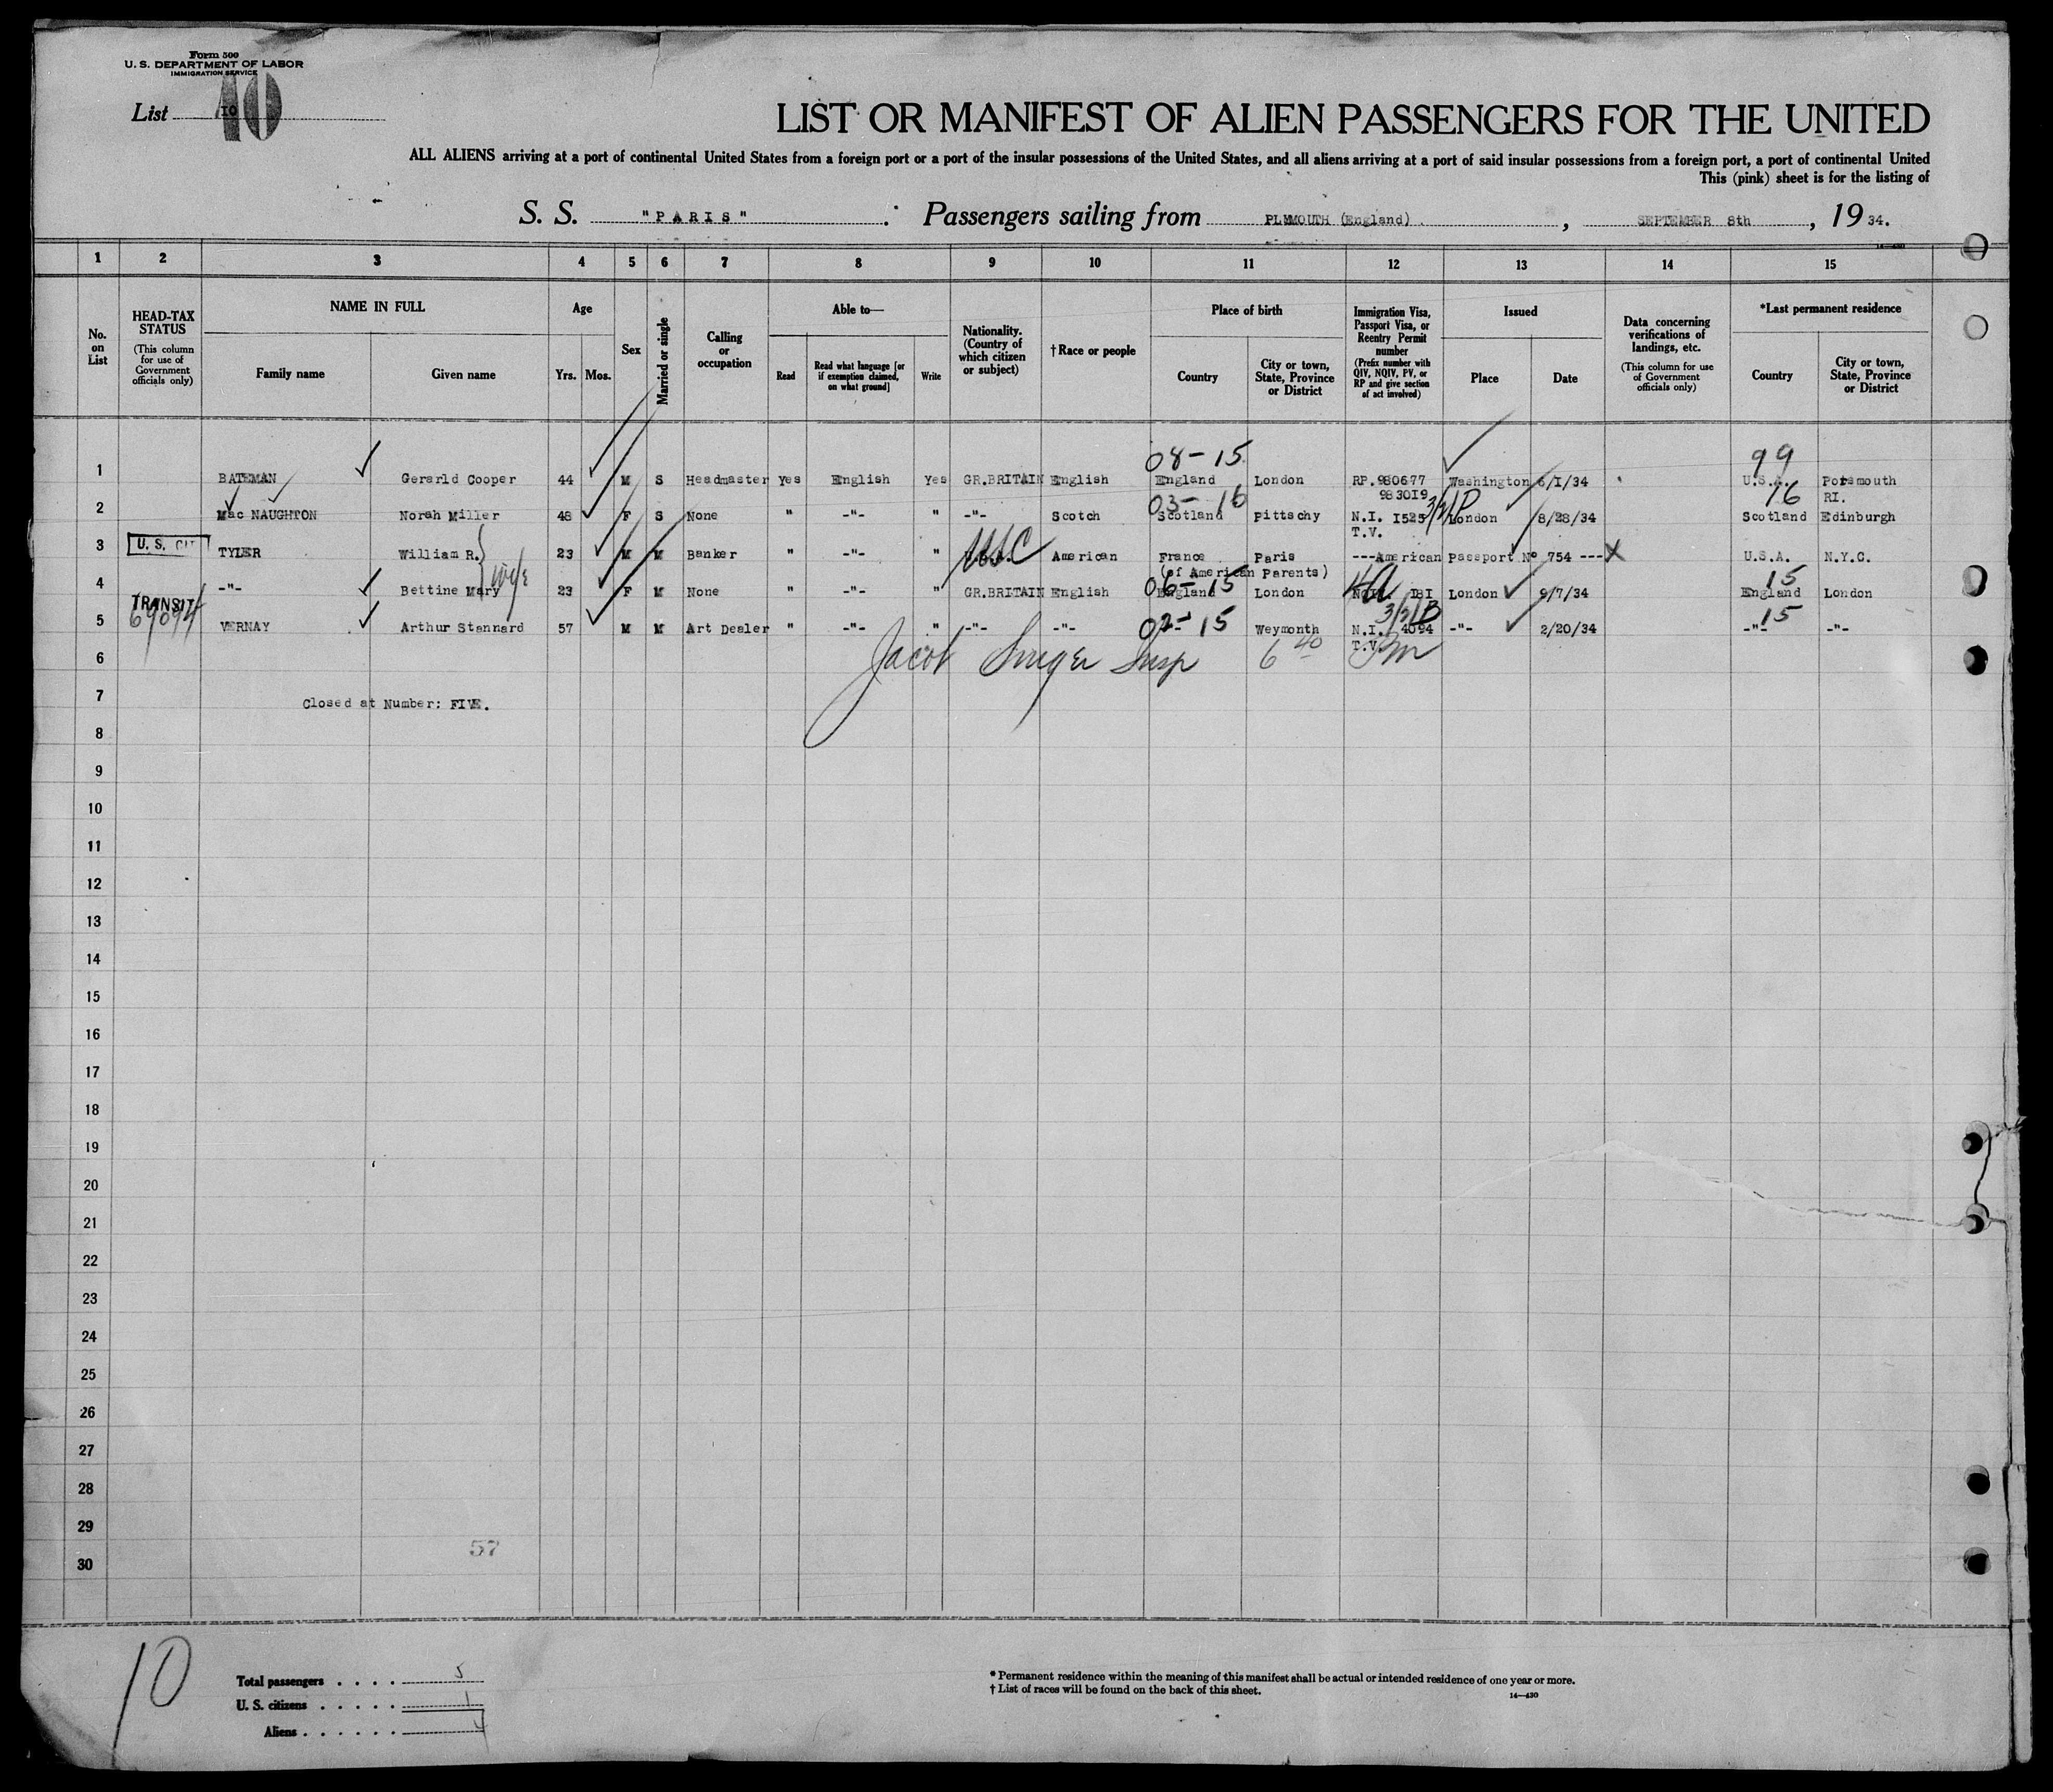 Form 500
U. S. DEPARTMENT OF LABOR
IMMIGRATION SERVICE
List 10
10
LIST OR MANIFEST OF ALIEN PASSENGERS FOR THE UNITED
ALL ALIENS arriving at a port of continental United States from a foreign port or a port of the insular possessions of the United States, and all aliens arriving at a port of said insular possessions from a foreign port, a port of continental United
This (pink) sheet is for the listing of
S. S. "PARIS" Passengers sailing from PLYMOUTH (England), SEPTEMBER 8th, 1934.
14—430
1 2 3 4 5 6 7 8 9 10 11 12 13 14 15
No. on List
HEAD-TAX STATUS
(This column for use of Government officials only)
NAME IN FULL
Family name
Given name
Age
Yrs. Mos.
Sex
Married or single
Calling or occupation
Able to—
Read
Read what language [or if exemption claimed, on what ground]
Write
Nationality. (Country of which citizen or subject)
†Race or people
Place of birth
Country
City or town, State, Province or District
Immigration Visa, Passport Visa, or Reentry Permit number
(Prefix number with QIV, NQIV, PV, or RP and give section of act involved)
Issued
Place
Date
Data concerning verifications of landings, etc.
(This column for use of Government officials only)
*Last permanent residence
Country
City or town, State, Province or District
08-15 99
1 BATEMAN Gerarld Cooper 44 M S Headmaster yes English Yes GR.BRITAIN English England London RP.980677 Washington 6/1/34 U.S.A. Portsmouth
983019 RI.
03-16 3/2/P 16
2 Mac NAUGHTON Norah Miller 48 F S None " -"- " -"- Scotch Scotland Pittschy N.I. I525 London 8/28/34 Scotland Edinburgh
T.V.
3 U. S. CIT TYLER William R. 23 M M Banker " -"- " USC American France Paris ---American Passport Nº 754 --- X U.S.A. N.Y.C.
(of American Parents)
wife
06-15 4a 15
4 -"- Bettine Mary 23 F M None " -"- " GR.BRITAIN English England London I8I London 9/7/34 England London
TRANSIT
69094
02-15 3/2/B 15
5 VERNAY Arthur Stannard 57 M M Art Dealer " -"- " -"- -"- -"- Weymonth N.I. 4094 -"- 2/20/34 -"- -"-
T.V.
6 Jacob Singer Insp 6 40 Pm
7 Closed at Number: FIVE.
8
9
10
11
12
13
14
15
16
17
18
19
20
21
22
23
24
25
26
27
28
29
57
30
10
Total passengers . . . . 5
U. S. citizens . . . . . 1
Aliens . . . . . . 4
* Permanent residence within the meaning of this manifest shall be actual or intended residence of one year or more.
† List of races will be found on the back of this sheet.
14—430